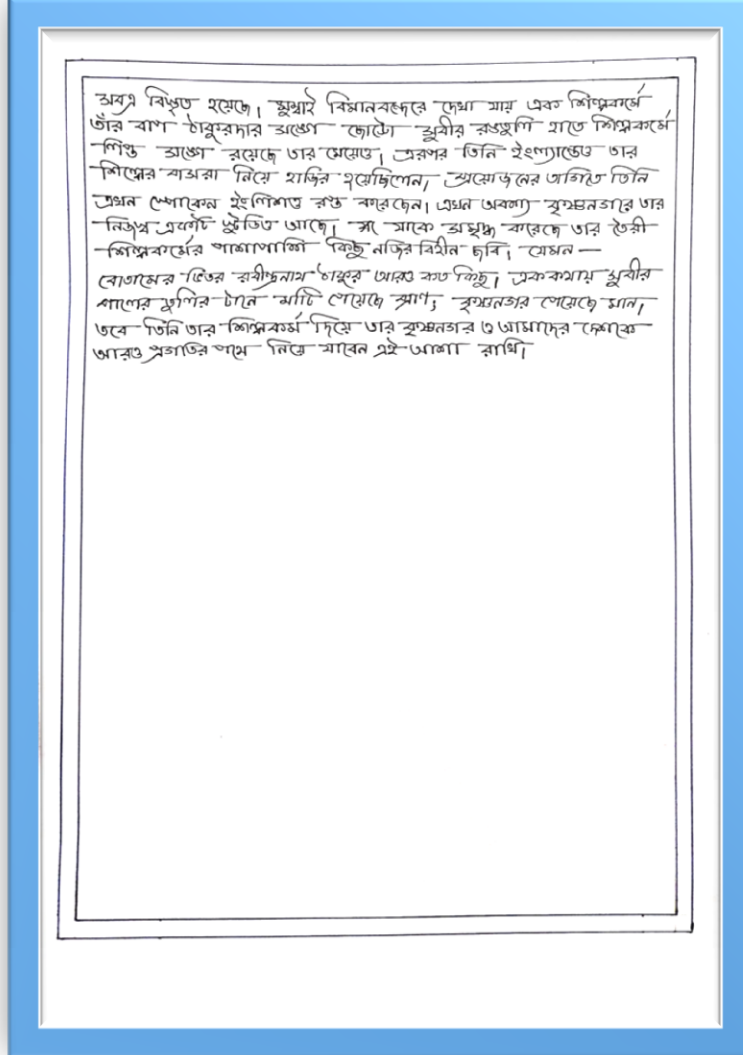 সবত্র বিস্তৃত হয়েছে। মুম্বাই বিমানবন্দরে দেখা যায় এক শিল্পকর্মে
তাঁর বাপ ঠাকুরদার সঙ্গে ছোটো সুবীর রঙতুলি হাতে শিল্পকর্মে
লিপ্ত সঙ্গে রয়েছে তার মেয়েও। এরপর তিনি ইংল্যান্ডেও তার
শিল্পের পসরা নিয়ে হাজির হয়েছিলেন। প্রয়োজনের তাগিতে তিনি
এখন স্পোকেন ইংলিশও রপ্ত করেছেন। এখন অবশ্য কৃষ্ণনগরে তার
নিজস্ব একটি স্টুডিও আছে। যাকে সমৃদ্ধ করেছে তার তৈরী
শিল্পকর্মের পাশাপাশি কিছু নজির বিহীন ছবি। যেমন —
বোতামের ভিতর রবীন্দ্রনাথ ঠাকুর আরও কত কিছু। এককথায় সুবীর
পালের তুলির টানে মাটি পেয়েছে প্রাণ, কৃষ্ণনগর পেয়েছে মান।
তবে তিনি তার শিল্পকর্ম দিয়ে তার কৃষ্ণনগর ও আমাদের দেশকে
আরও প্রগতির পথে নিয়ে যাবেন এই আশা রাখি।